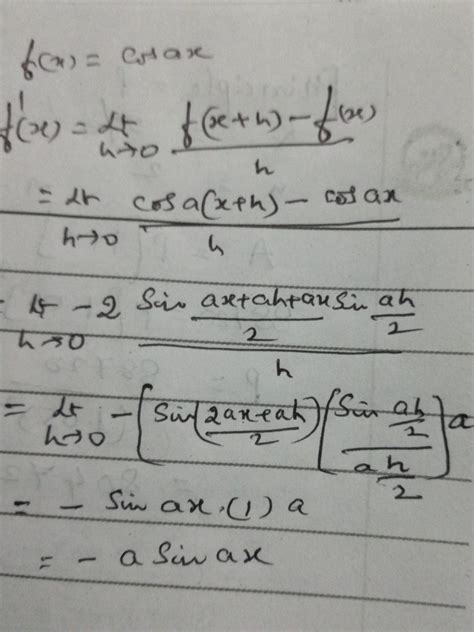 f(x) = cos ax
f'(x) = Lt h→0 (f(x+h) - f(x))/h
= Lt h→0 (cos a(x+h) - cos ax)/h
= Lt h→0 -2 Sin (ax+ah+ax)/2 Sin (ah/2) / h
= Lt h→0 -[Sin(2ax+ah)/2) [Sin (ah/2) / (a h/2)] a
= - Sin ax . (1) a
= - a Sin ax